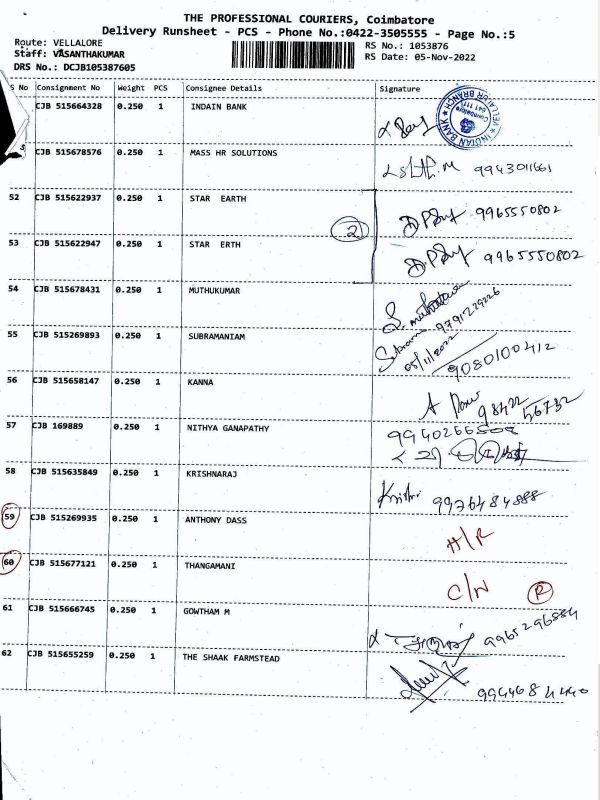 THE PROFESSIONAL COURIERS, Coimbatore
Delivery Runsheet - PCS - Phone No.:0422-3505555 - Page No.:5
Route: VELLALORE
Staff: VASANTHAKUMAR
DRS No.: DCJB105387605
RS No.: 1053876
RS Date: 05-Nov-2022
S No Consignment No Weight PCS Consignee Details Signature
CJB 515664328 0.250 1 INDAIN BANK
INDIAN BANK
Coimbatore
641 111
VELLALUR BRANCH
CJB 515678576 0.250 1 MASS HR SOLUTIONS 9943011661
52 CJB 515622937 0.250 1 STAR EARTH 9965550802
2
53 CJB 515622947 0.250 1 STAR ERTH 9965550802
54 CJB 515678431 0.250 1 MUTHUKUMAR 9791229226
55 CJB 515269893 0.250 1 SUBRAMANIAM
05/11/2022 9080100412
56 CJB 515658147 0.250 1 KANNA 98422 56732
57 CJB 169889 0.250 1 NITHYA GANAPATHY
58 CJB 515635849 0.250 1 KRISHNARAJ 9976484888
59 CJB 515269935 0.250 1 ANTHONY DASS H/R
60 CJB 515677121 0.250 1 THANGAMANI C/N R
61 CJB 515666745 0.250 1 GOWTHAM M 9965296884
62 CJB 515655259 0.250 1 THE SHAAK FARMSTEAD 9944684440